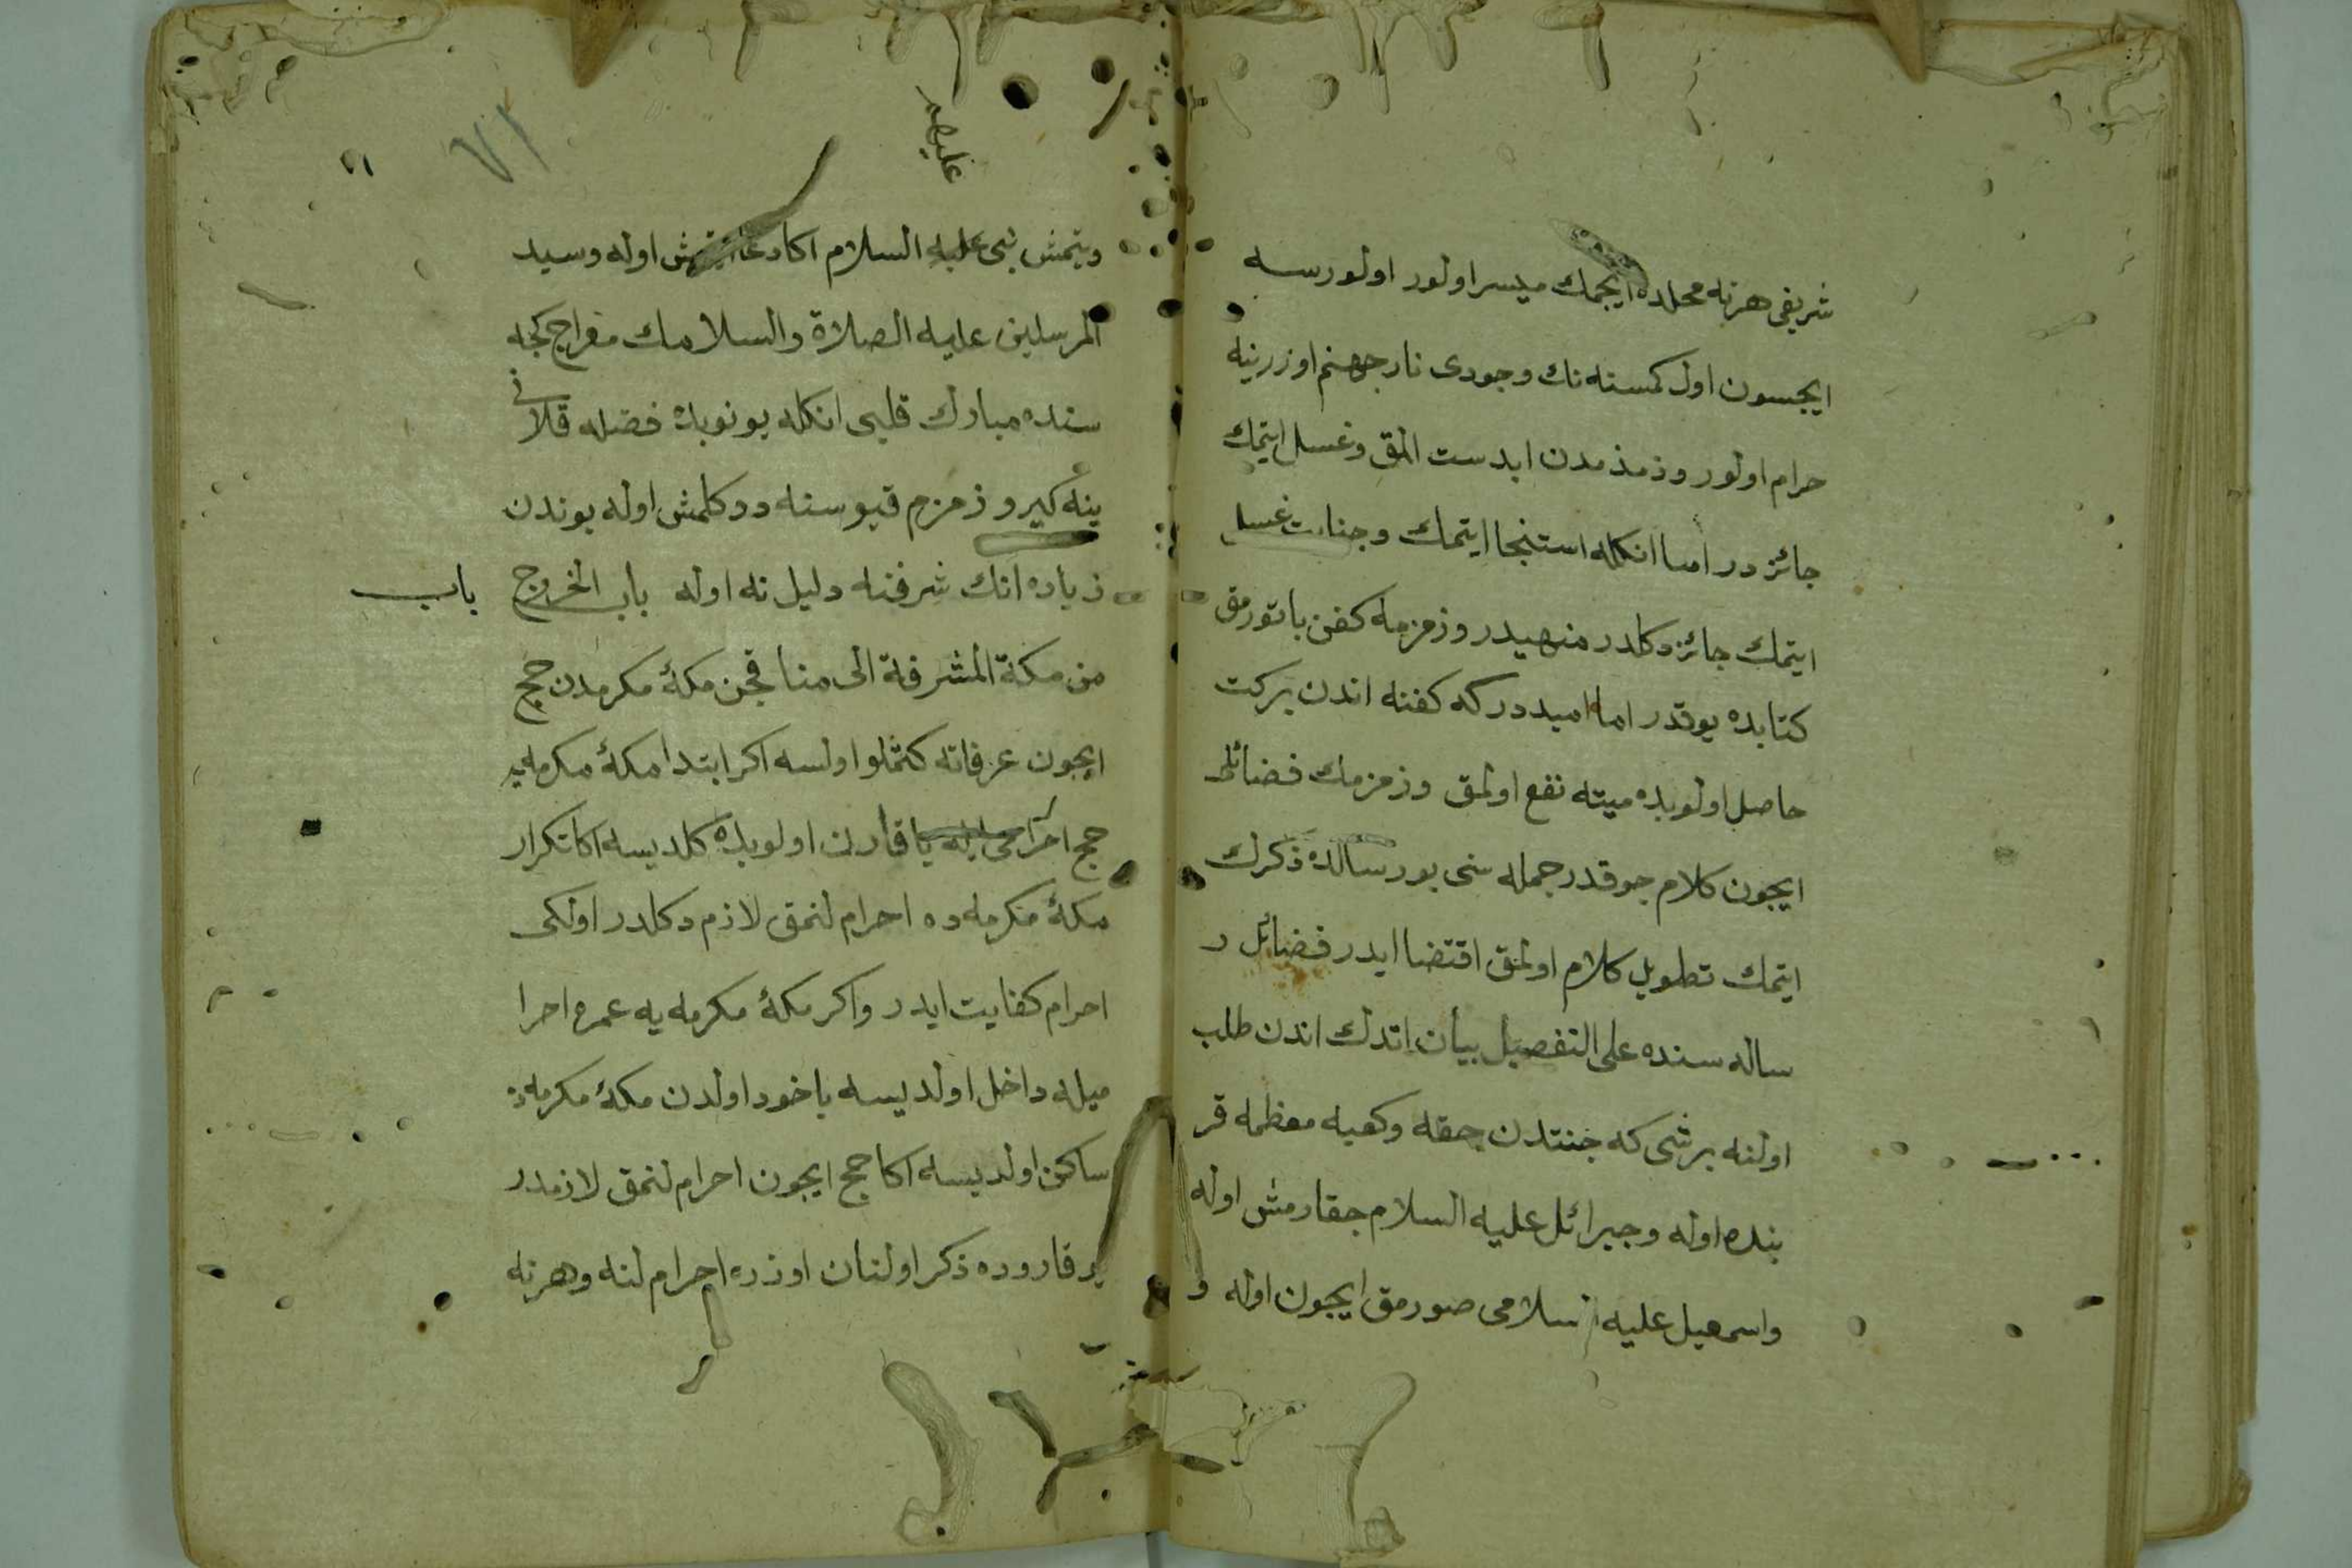 شريفى هر نه محلده ايچمك ميسر اولور اولورسه
ايجسون اول كمسنه نك وجودى نار جهنم اوزرينه
حرام اولور وزمذمدن ابدست المق وغسل ايتمك
جائز در اما انكله استنجا ايتمك وجنابت غسل
ايتمك جائز دكلدر منهيدر وزمزمله كفن باتورمق
كتابده يوقدر اما اميد در كه كفنه اندن بركت
حاصل اولوبده ميته نفع اولمق وزمزمك فضائلى
ايچون كلام جوقدر جمله سنى بو رسالده ذكرك
ايتمك تطويل كلام اولمق اقتضا ايدر فضائل ر
ساله سنده على التفصيل بيان اتدك اندن طلب
اولنه برشى كه جنتدن چقه وكعبه معظمه قر
بنده اوله وجبرائل عليه السلام جقارمش اوله
واسمعيل عليه السلامى صورمق ايچون اوله و
ويتمش نبى عليه السلام اكا دعا ايتمش اوله وسيد
المرسلين عليه الصلاة والسلامك معراج كجه
سنده مبارك قلبى انكله يونوبده فضله قلانى
ينه كيرو زمزم قيوسنه دوكلمش اوله بوندن
زياده انك شرفنه دليل نه اوله باب الخروج
باب
من مكة المشرفة الى منا قچن مكۀ مكرمدن حج
ايچون عرفاته كتملو اولسه اكر ابتدا مكۀ مكرمه يه
حج احرامى ايله يا قارن اولوبده كلديسه اكا تكرار
مكۀ مكرمه ده احرام لنمق لازم دكلدر اولكى
احرام كفايت ايدر واكر مكۀ مكرمه يه عمره احرا
ميله داخل اولديسه ياخود اولدن مكۀ مكرمه ده
ساكن اولديسه اكا حج ايچون احرام لنمق لازمدر
يوقاروده ذكر اولنان اوزره احرام لنه وهر نه